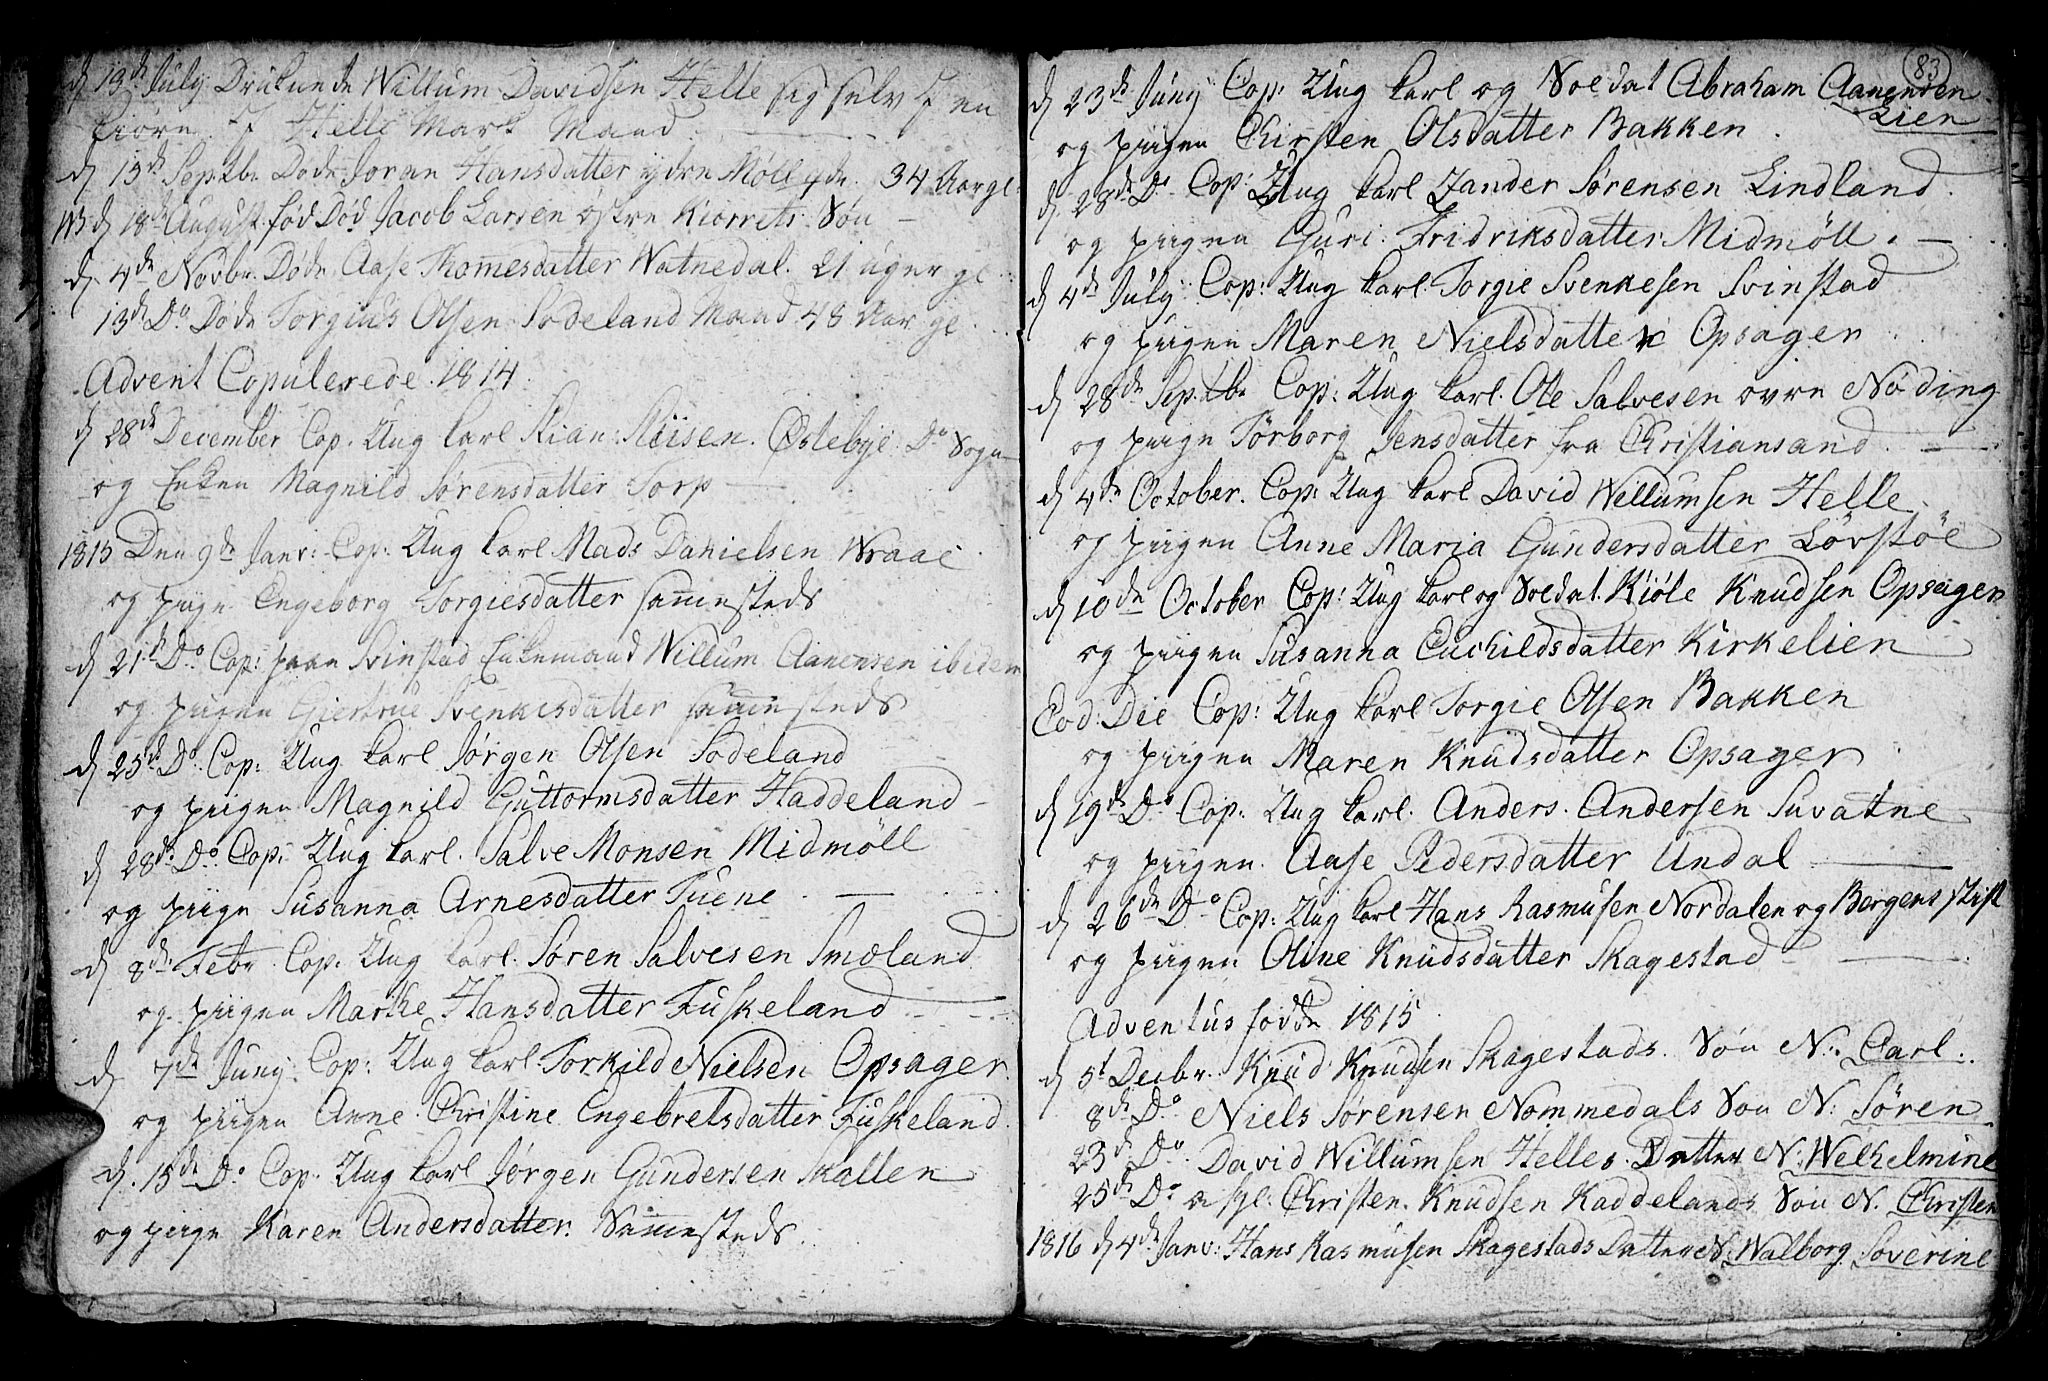 d 13de July Drukunde Willum Davidsen Helle sig selv J en
Kiørn J Helle Mark Mand
d 15de Septbr Døde Joran Hansdatter ydre Møll 34 Aar gl:
NB d 18de August fød Død Jacob Larsen østre Kiorrets Søn
d 4de Novbr: Døde Aase Thomesdatter Watnedal. 21 uger gl
13de Do Døde Torgius Olsen Sodeland Mand 48 Aar gl
Advent Copulerede 1814
d 28de December Cop. Ung karl Stian Østebye Do Sogn
og Enken Magnild Sørensdatter Torp
1815 Den 9de Janv: Cop: Ung karl Mads Danielsen Wraae
og piige Engeborg Torgiesdatter sammesteds
d 21de Do Cop: paa Svinstad Enkemand Willum Aanensen ibidem
og piigen Giertrue Svenkesdatter sammesteds
d 25de Do Cop: Ung karl Jørgen Olsen Sodeland
og piigen Magnild Guttormsdatter Haddeland
d 28de Do Cop: Ung karl. Salve Monsen Midmöll
og piige Susanna Arnesdatter Tuene
d 8de Febr Cop. Ung karl. Søren Salvesen Smoland
og piigen Marthe Hansdatter Fuskeland
d 7de Juny: Cop: Ung karl. Torkild Nielsen Opsager
og piigen Anne Christine Engebretsdatter Fuskeland
d. 15de Do Cop. Ung karl Jørgen Gundersen Kallen
og piige Karen Andersdatter. Sammesteds
83
d 23de Juny Cop: Ung karl og Soldat Abraham Aanensen
Lien
og piigen Chirsten Olsdatter Bakken
d 28de Do Cop: Ung karl Zander Sørensen Lindland
og piigen Guri Fridriksdatter Midmöll
d 4de July Cop: Ung karl Torgie Svenkesen Svinstad
og piigen Maren Nielsdatter Opsager
d 28de Septbr Cop: Ung karl. Ole Salvesen ovre Nöding
og piige Törborg Jensdatter fra Christiansand
d 4de October. Cop: Ung karl David Willumsen Helle
og piigen Anne Maria Gundersdatter Lövstöe
d 10de October Cop: Ung karl og Soldat Kiöle Knudsen Opsager
og piigen Susanna Euchildsdatter Kirkelien
Eod: Die Cop: Ung karl Torgie Olsen Bakken
og piigen Maren Knudsdatter Opsager
d 19de Do Cop: Ung karl. Anders Andersen Suvatne
og piigen. Aase Pedersdatter Undal
d 26de Do Cop: Ung karl Hans Rasmusen Nordalen og Bergens stift
og piigen Oline Knudsdatter Skagestad
Adventus födde 1815
d 5t Decbr. Knud Knudsen Skagestads Søn N: Carl:
8de Do Niels Sørensen Nommedals Søn N: Sören
23de Do David Willumsen Helles Datter N. Welhelmine
25de Do Christen Knudsen Haddelands Søn N. Christen
1816 d 4de Janv: Hans Rasmusen Skagestads Datter N. Walborg Soverine